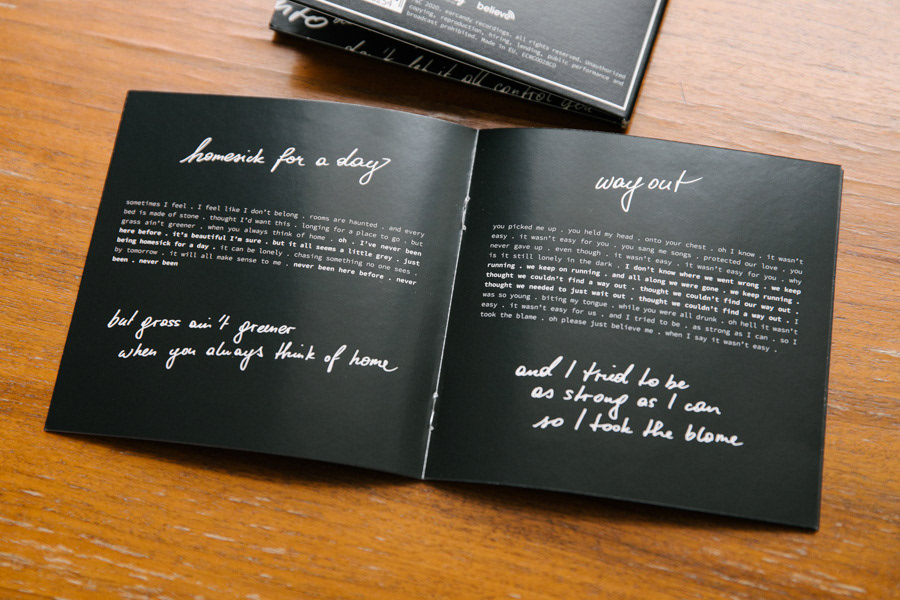 believe
2020. earcandy recordings. all rights reserved. Unauthorized
copying, reproduction, hiring, lending, public performance and
broadcast prohibited. Made in EU.
let it all control you
homesick for a day
sometimes I feel . I feel like I don't belong . rooms are haunted . and every
bed is made of stone . thought I'd want this . longing for a place to go . but
grass ain't greener . when you always think of home . oh . I've never been
here before . it's beautiful I'm sure . but it all seems a little grey . just
being homesick for a day . it can be lonely . chasing something no one sees .
by tomorrow . it will all make sense to me . never been here before . never
been . never been
but grass ain't greener
when you always think of home
way out
you picked me up . you held my head . onto your chest . oh I know . it wasn't
easy . it wasn't easy for you . you sang me songs . protected our love . you
never gave up . even though . it wasn't easy . it wasn't easy for you . why
is it still lonely in the dark . I don't know where we went wrong . we keep
running . we keep on running . and all along we were gone . we keep running .
thought we couldn't find a way out . thought we couldn't find our way out .
thought we needed to just wait out . thought we couldn't find a way out . I
was so young . biting my tongue . while you were all drunk . oh hell it wasn't
easy . it wasn't easy for us . and I tried to be . as strong as I can . so I
took the blame . oh please just believe me . when I say it wasn't easy .
and I tried to be
as strong as I can
so I took the blame